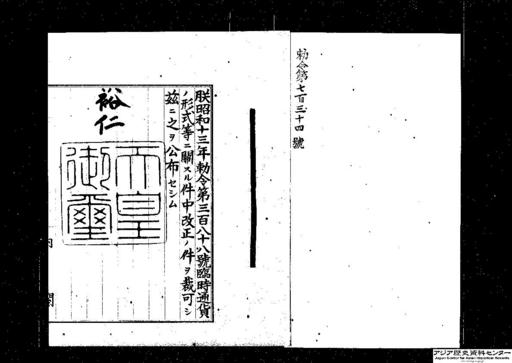 勅令第七百三十四號
朕昭和十三年勅令第三百八十八號臨時通貨
ノ形式等ニ關スル件中改正ノ件ヲ裁可シ
茲ニ之ヲ公布セシム
裕仁
天皇
御璽
内
閣
アジア歴史資料センター
Japan Center for Asian Historical Records